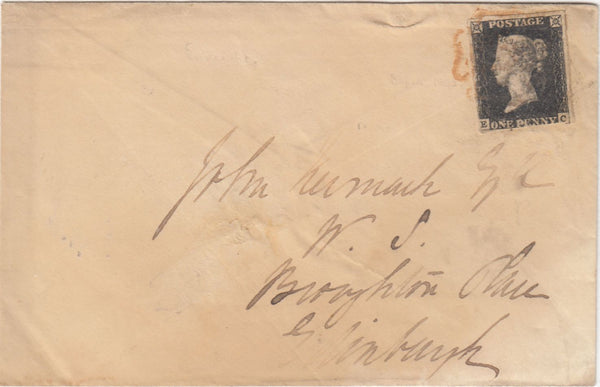 POSTAGE
E ONE PENNY C
John Esqr
W. S.
Broughton Place
Edinburgh